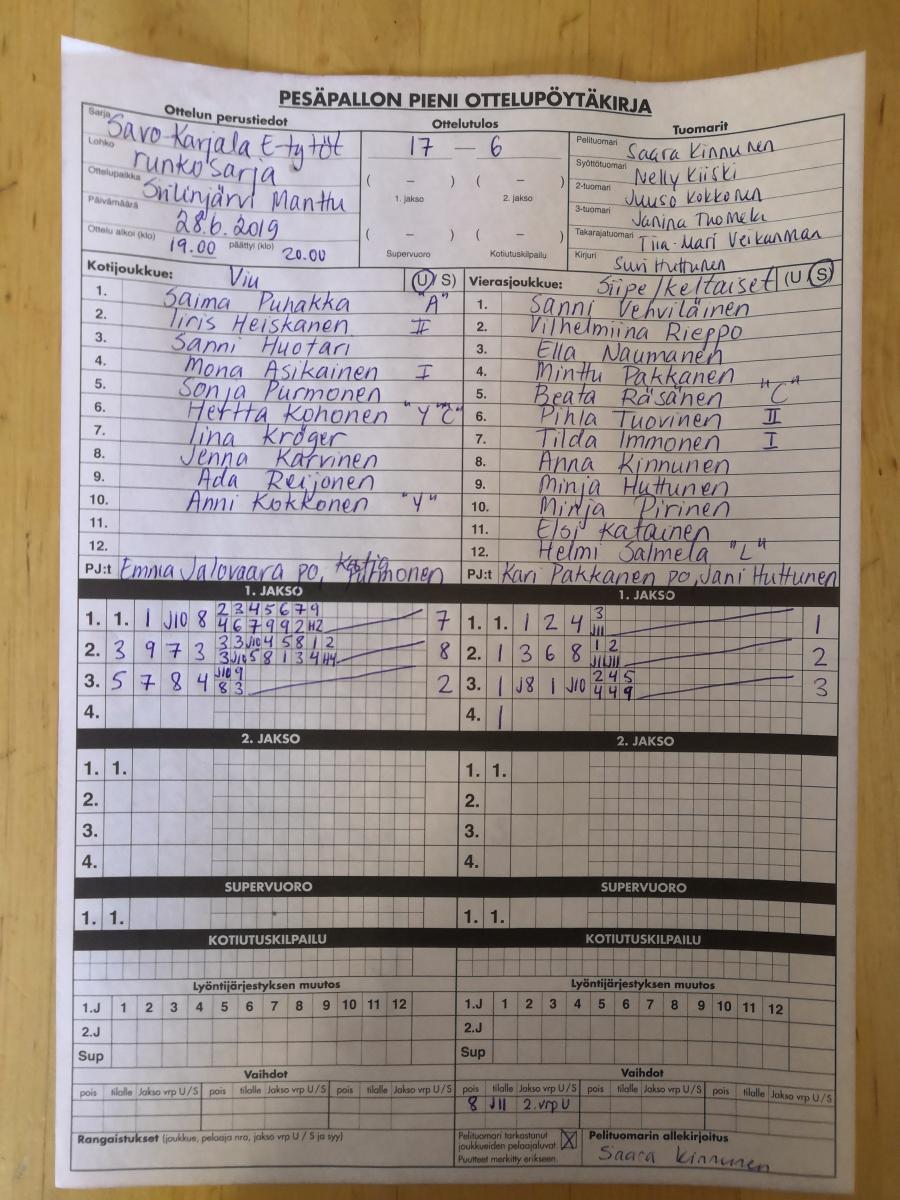 PESÄPALLON PIENI OTTELUPÖYTÄKIRJA
Ottelun perustiedot
Sarja Savo-Karjala E-tytöt
Lohko runkosarja
Ottelupaikka Siilinjärvi Manttu
Päivämäärä 28.6.2019
Ottelu alkoi (klo) 19.00 päättyi (klo) 20.00
Ottelutulos
17 — 6
( – ) ( – )
1. jakso 2. jakso
( – ) ( – )
Supervuoro Kotiutuskilpailu
Tuomarit
Pelituomari Saara Kinnunen
Syöttötuomari Nelly Kiiski
2-tuomari Juuso Kokkonen
3-tuomari Janina Tuomela
Takarajatuomari Tiia-Mari Veikanman
Kirjuri Suvi Huttunen
Kotijoukkue: Viu (U/S)
1. Saima Puhakka "A"
2. Iiris Heiskanen II
3. Sanni Huotari
4. Mona Asikainen I
5. Sonja Purmonen
6. Herta Kohonen "Y" "C"
7. Iina Kröger
8. Jenna Karvinen
9. Ada Reijonen
10. Anni Kokkonen "Y"
11.
12.
PJ:t Emma Jalovaara po, Katja Purmonen
Vierasjoukkue: Siipe/keltaiset (U/S)
1. Sanni Vehviläinen
2. Vilhelmiina Rieppo
3. Ella Naumanen
4. Minttu Pakkanen
5. Beata Räsänen "C"
6. Pihla Tuovinen II
7. Tilda Immonen I
8. Anna Kinnunen
9. Minja Huttunen
10. Minja Pirinen
11. Elsi Katainen
12. Helmi Salmela "L"
PJ:t Kari Pakkanen po, Jani Huttunen
1. JAKSO
2 3 4 5 6 7 9
1. 1. 1 J10 8 7
4 6 7 9 9 2 H2
3 3 J10 4 5 8 1 2
2. 3 9 7 3 8
3 J10 5 8 1 3 4 H4
J10 9
3. 5 7 8 4 2
8 3
4.
1. JAKSO
3
1. 1. 1 2 4 1
J11
1 2
2. 1 3 6 8 2
J11 J11
2 4 5
3. 1 J8 1 J10 3
4 4 9
4. 1
2. JAKSO
1. 1.
2.
3.
4.
2. JAKSO
1. 1.
2.
3.
4.
SUPERVUORO
1. 1.
SUPERVUORO
1. 1.
KOTIUTUSKILPAILU
KOTIUTUSKILPAILU
Lyöntijärjestyksen muutos
1.J 1 2 3 4 5 6 7 8 9 10 11 12
2.J
Sup
Lyöntijärjestyksen muutos
1.J 1 2 3 4 5 6 7 8 9 10 11 12
2.J
Sup
Vaihdot
pois tilalle Jakso vrp U/S pois tilalle Jakso vrp U/S pois tilalle Jakso vrp U/S
Vaihdot
pois tilalle Jakso vrp U/S pois tilalle Jakso vrp U/S pois tilalle Jakso vrp U/S
8 J11 2.vrp U
Rangaistukset (joukkue, pelaaja nro, jakso vrp U / S ja syy)
Pelituomari tarkastanut
joukkueiden pelaajaluvat. X
Puutteet merkitty erikseen.
Pelituomarin allekirjoitus
Saara Kinnunen